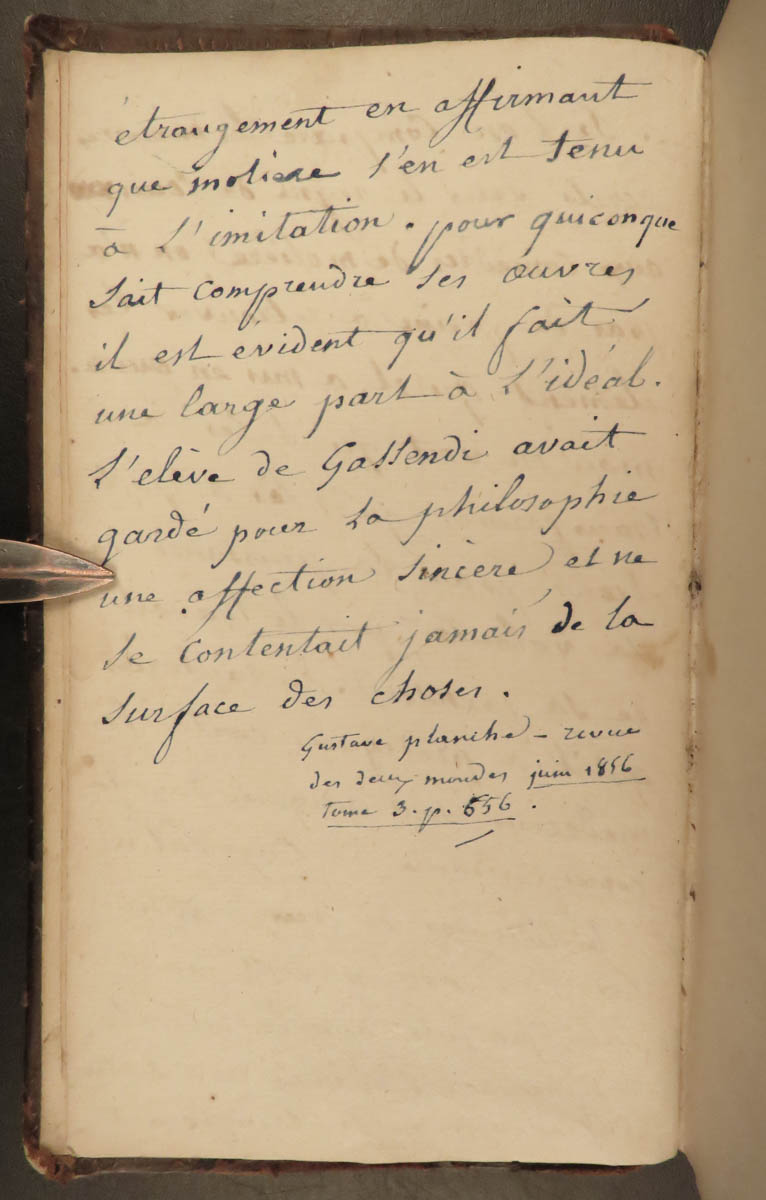 étrangement en affirmant
que moliere s'en est tenu
à l'imitation. pour quiconque
sait comprendre ses œuvres
il est évident qu'il fait
une large part à l'idéal.
L'elève de Gassendi avait
gardé pour la philosophie
une affection sincère et ne
se contentait jamais de la
surface des choses.
Gustave planche - revue
des deux mondes juin 1856
tome 3. p. 556.